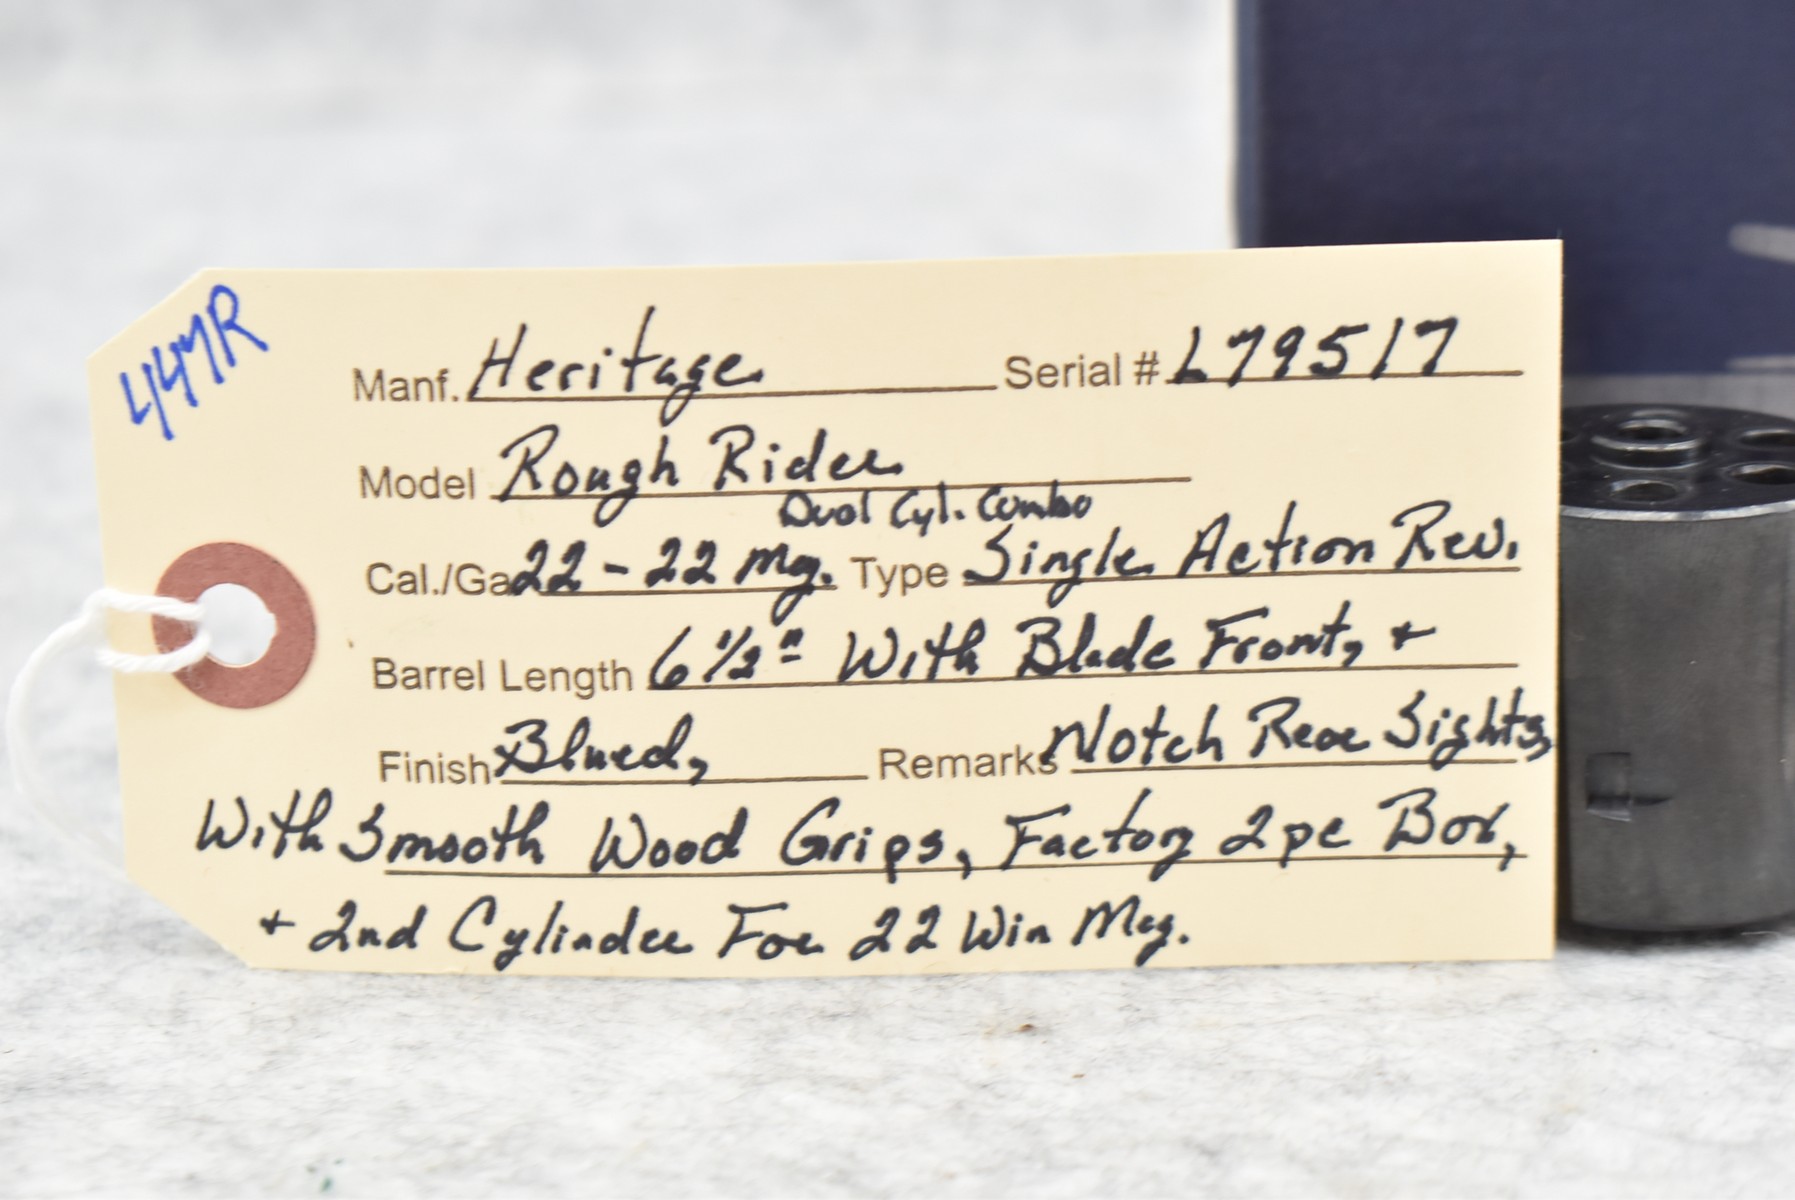 447R
Manf. Heritage Serial # L79517
Model Rough Rider
Dual Cyl. Combo
Cal./Ga 22 - 22 Mg. Type Single Action Rev.
Barrel Length 6 1/2" With Blade Front, +
Finish Blued, Remarks Notch Rear Sights,
With Smooth Wood Grips, Factory 2pc Box,
+ 2nd Cylinder For 22 Win Mag.